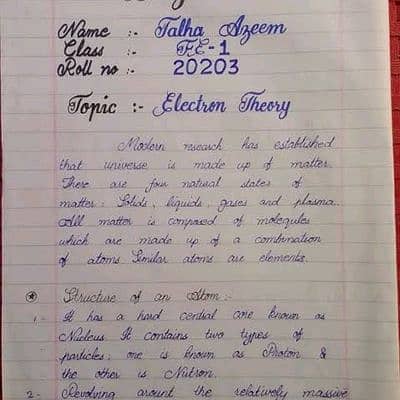 Name :- Talha Azeem
Class :- FE-1
Roll no :- 20203
Topic :- Electron Theory
Modern research has established
that universe is made up of matter.
There are four natural states of
matter: Solids, liquids, gases and plasma.
All matter is composed of molequles
which are made up of a combination
of atoms. Similar atoms are elements.
Structure of an Atom :-
1- It has a hard central core known as
Nucleus. It contains two types of
particles; one is known as Photon &
the other is Nutron.
2- Revolving around the relatively massive